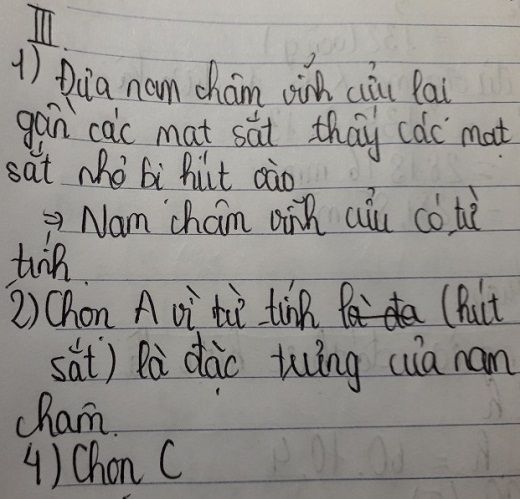 III.
1) Đưa nam châm vĩnh cửu lại
gần các mạt sắt thấy các mạt
sắt nhỏ bị hút vào
⇒ Nam châm vĩnh cửu có từ
tính.
2) Chọn A vì từ tính là đa (hút
sắt) là đặc trưng của nam
châm.
4) Chọn C